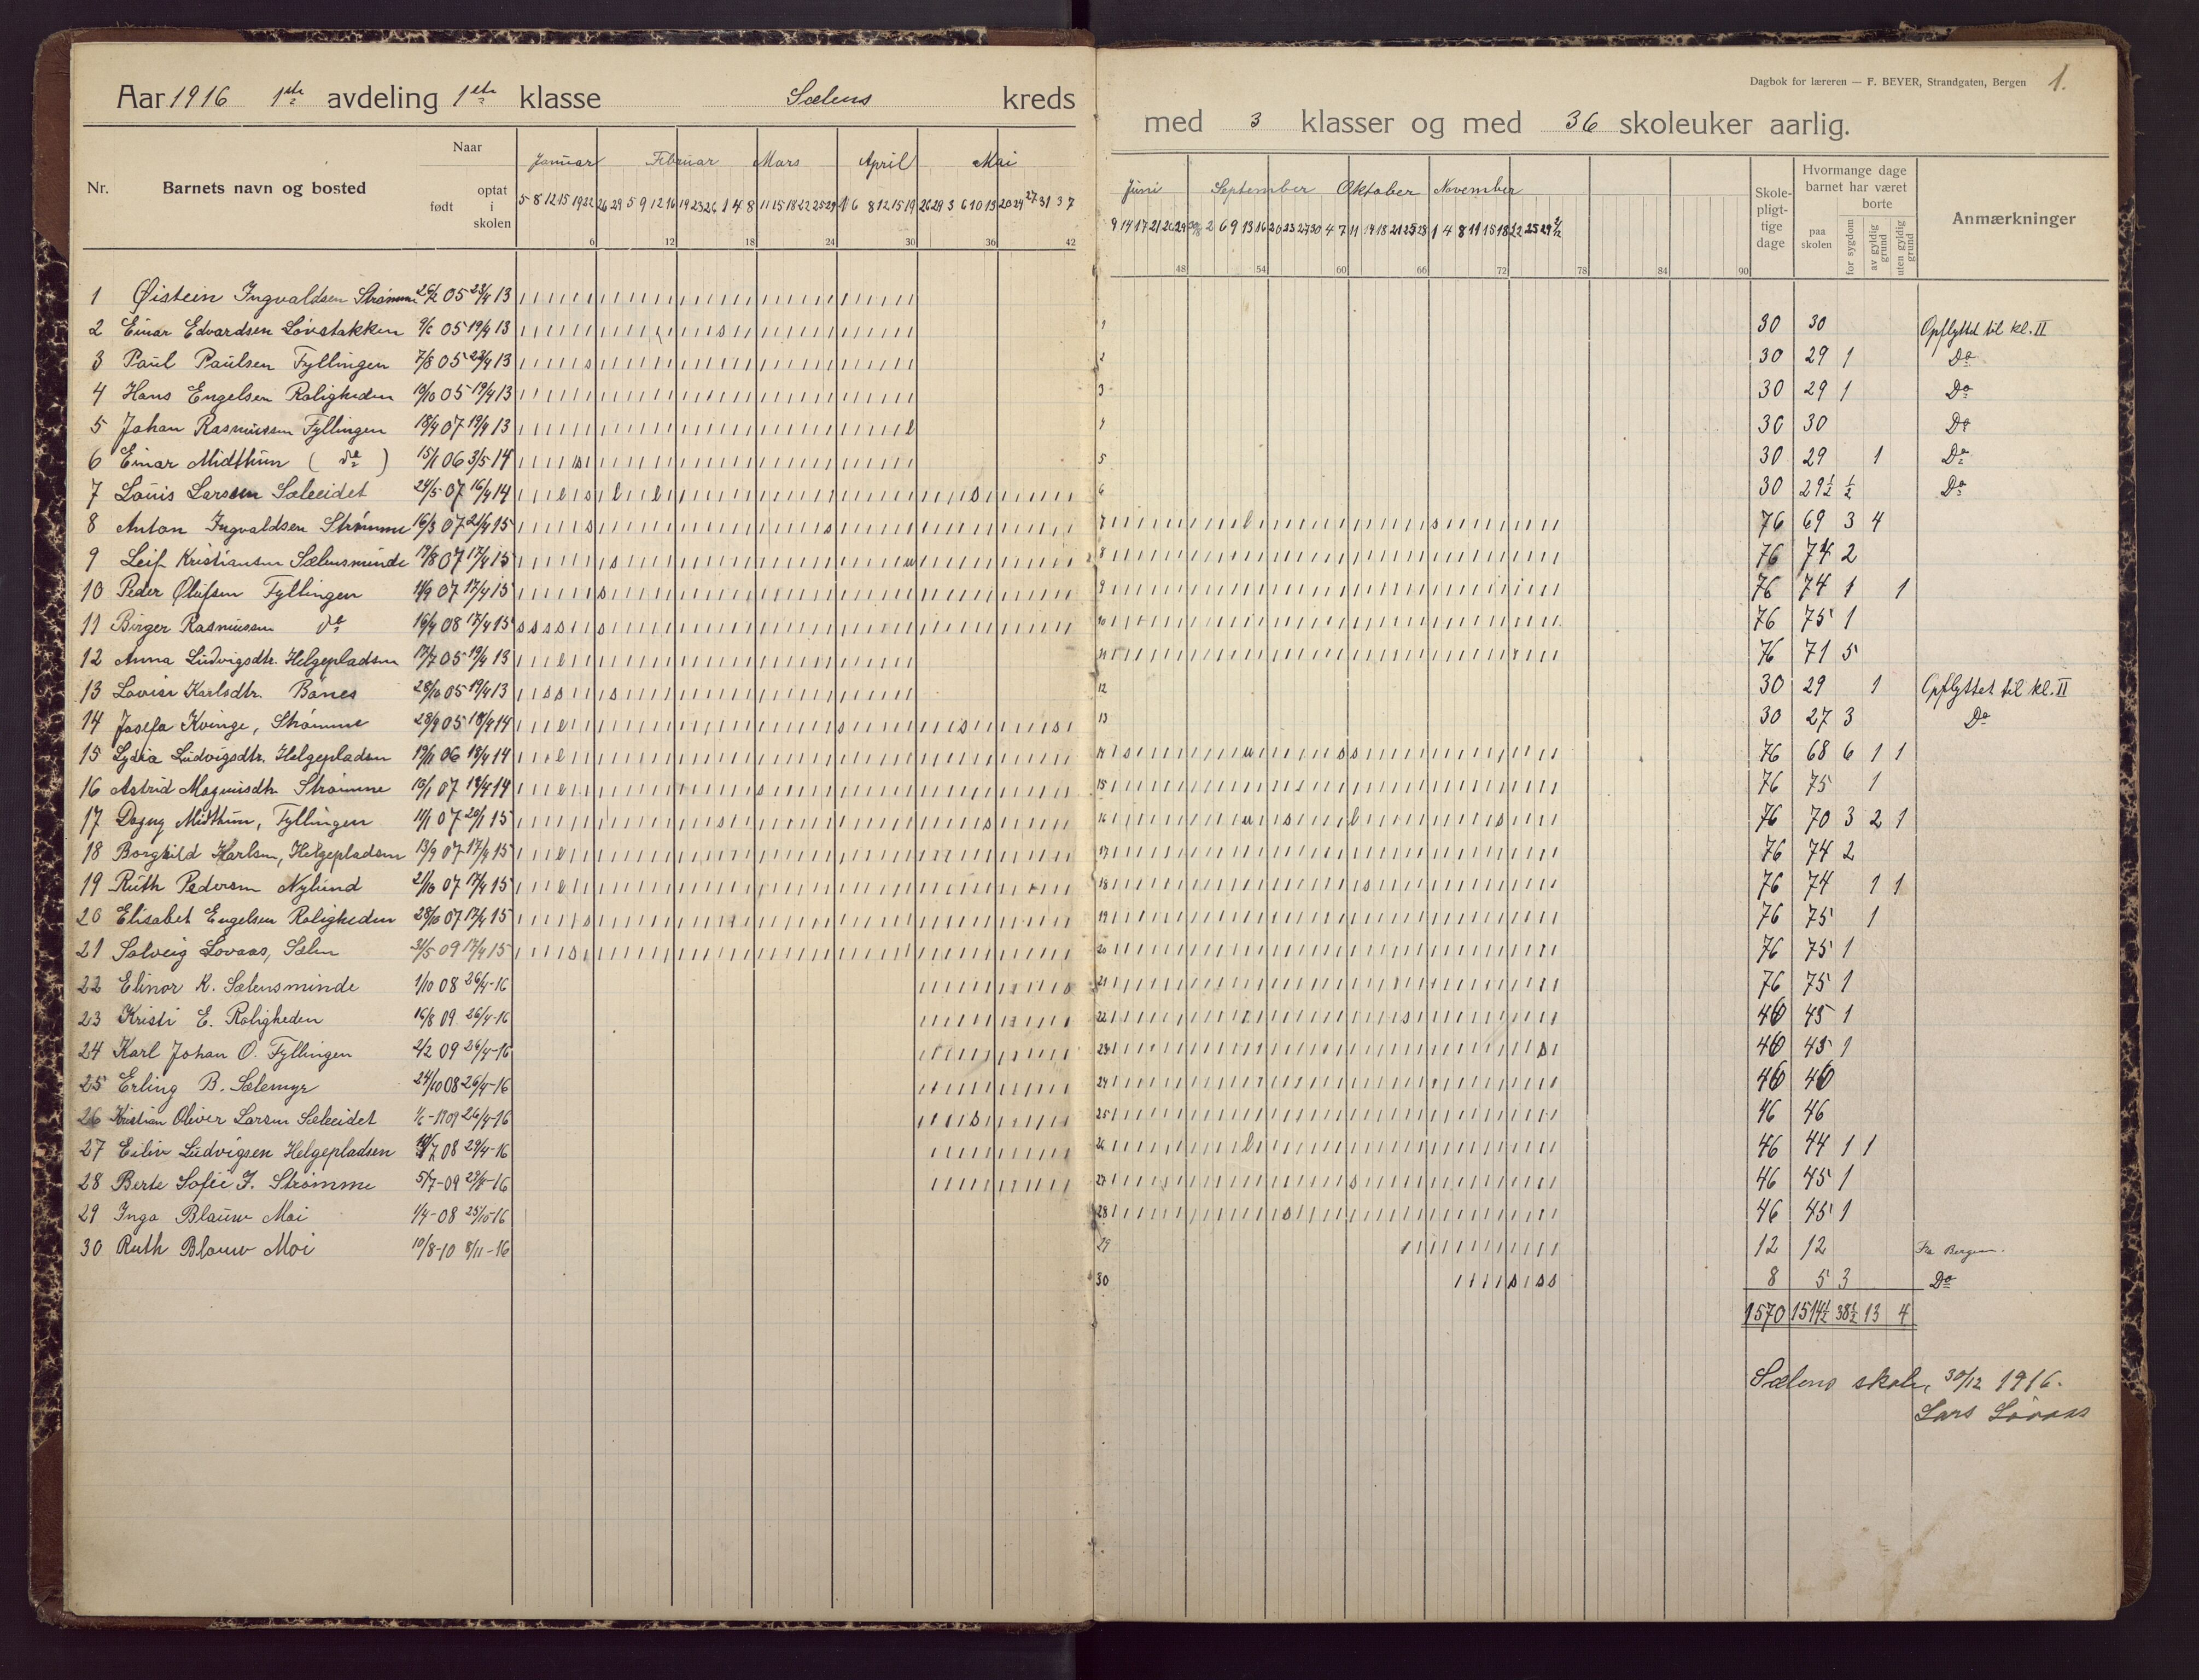 Aar 1916 1ste avdeling 1ste klasse Sælens kreds
Nr. Barnets navn og bosted Naar født optat i skolen
Januar Februar Mars April Mai
5 8 12 15 19 22 26 29 5 9 12 16 19 23 26 1 4 8 11 15 18 22 25 29 1 6 8 12 15 19 26 29 3 6 10 13 20 24 27 31 3 7
6 12 18 24 30 36 42
1 Øistein Ingvaldsen Strømme 26/2 05 23/4 13
2 Einar Edvardsen Løvstakken 9/6 05 19/4 13
3 Paul Paulsen Fyllingen 7/8 05 22/4 13
4 Hans Engelsen Roligheden 13/10 05 19/4 13
5 Johan Rasmussen Fyllingen 18/4 07 19/4 13
6 Einar Midthun ( do ) 15/1 06 3/5 14
7 Louis Larsen Sæleeidet 24/5 07 16/4 14
8 Anton Ingvaldsen Strømme 16/3 07 21/4 15
9 Leif Kristiansen Sælensminde 17/8 07 17/4 15
10 Peder Olufsen Fyllingen 11/9 07 17/4 15
11 Birger Rasmussen do 16/4 08 17/4 15
12 Anna Ludvigsdtr. Helgepladsen 17/7 05 19/4 13
13 Lovise Karlsdtr. Bønes 28/10 05 19/4 13
14 Josefa Kvinge, Strømme 28/9 05 18/4 14
15 Lydia Ludvigsdtr. Helgepladsen 19/11 06 18/4 14
16 Astrid Magnusdtr. Strømme 13/1 07 18/4 14
17 Dagny Midthun, Fyllingen 11/1 07 20/1 15
18 Borghild Karlsen, Helgepladsen 13/9 07 17/4 15
19 Ruth Pedersen Nylund 21/10 07 17/4 15
20 Elisabet Engelsen Roligheden 28/10 07 17/4 15
21 Solveig Lovaas, Sælen 21/5 09 17/4 15
22 Elinor K. Sælensminde 1/10 08 26/4-16
23 Kristi E. Roligheden 16/8 09 26/4-16
24 Karl Johan O. Fyllingen 2/2 09 26/4-16
25 Erling B. Sælemyr 24/10 08 26/4-16
26 Kristian Oliver Larsen Sæleeidet 1/6-1909 26/4-16
27 Eiliv Ludvigsen Helgepladsen 7 08 29/4-16
28 Berte Sofie I. Strømme 5/7-09 29/4-16
29 Inga Blauw Moi 1/4-08 25/10-16
30 Ruth Blauw Moi 10/8-10 8/11-16
Dagbok for læreren — F. BEYER, Strandgaten, Bergen 1.
med 3 klasser og med 36 skoleuker aarlig.
Juni September Oktober November
9 14 17 21 26 29 30/8 2 6 9 13 16 20 23 27 30 4 7 11 14 18 21 25 28 1 4 8 11 15 18 22 25 29 2/12
48 54 60 66 72 78 84 90
Skolepligttige dage
Hvormange dage barnet har været borte
paa skolen for sygdom av gyldig grund uten gyldig grund
Anmærkninger
1 30 30 Opflyttet til kl. II
2 30 29 1 Do
3 30 29 1 Do
4 30 30 Do
5 30 29 1 Do
6 30 29½ ½ Do
7 76 69 3 4
8 76 74 2
9 76 74 1 1
10 76 75 1
11 76 71 5
12 30 29 1 Opflyttet til kl. II
13 30 27 3 Do
14 76 68 6 1 1
15 76 75 1
16 76 70 3 2 1
17 76 74 2
18 76 74 1 1
19 76 75 1
20 76 75 1
21 76 75 1
22 46 45 1
23 46 45 1
24 46 46
25 46 46
26 46 44 1 1
27 46 45 1
28 46 45 1
29 12 12 Fra Bergen.
30 8 5 3 Do
1570 1514½ 38½ 13 4
Sælens skole, 30/12 1916.
Lars Lovaas